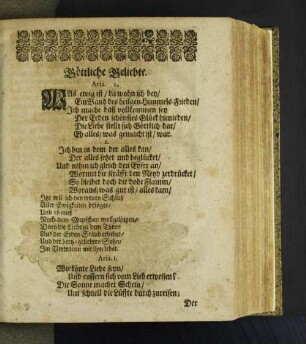 Göttliche Geliebte.
Aria. 1.
WAs ewig ist / da wohn ich bey /
Ein Band des heilgen Himmels-Frieden /
Ich mache daß vollkommen sey
Der Erden schönstes Glück hienieden /
Die Liebe stellt sich Göttlich dar /
Eh alles / was gemacht ist / war.
2.
Ich bin in dem der alles kan /
Der alles sehet und beglücket /
Und nehm ich gleich den Eyfer an /
Womit die straffe den Neyd zerdrücket /
So bleibet doch die hohe Flamm /
Woraus / was gut ist / alles kam /
Itzt will ich den treuen Schluß
Aller Ewigkeiten
Und es muß
Nach dem Weysischen
Wenn die Liebe in dem Thron
Aus der Erden Staub erhebet /
Und der hertz-geliebten Sohn /
Im Vertrauen mit ihm lebet.
Aria. 1.
Wie könte Liebe seyn /
Und äussern sich vom Lieb erweisen?
Die Sonne machet Schein /
Um schnell die Lüffte durchzureisen;
Der